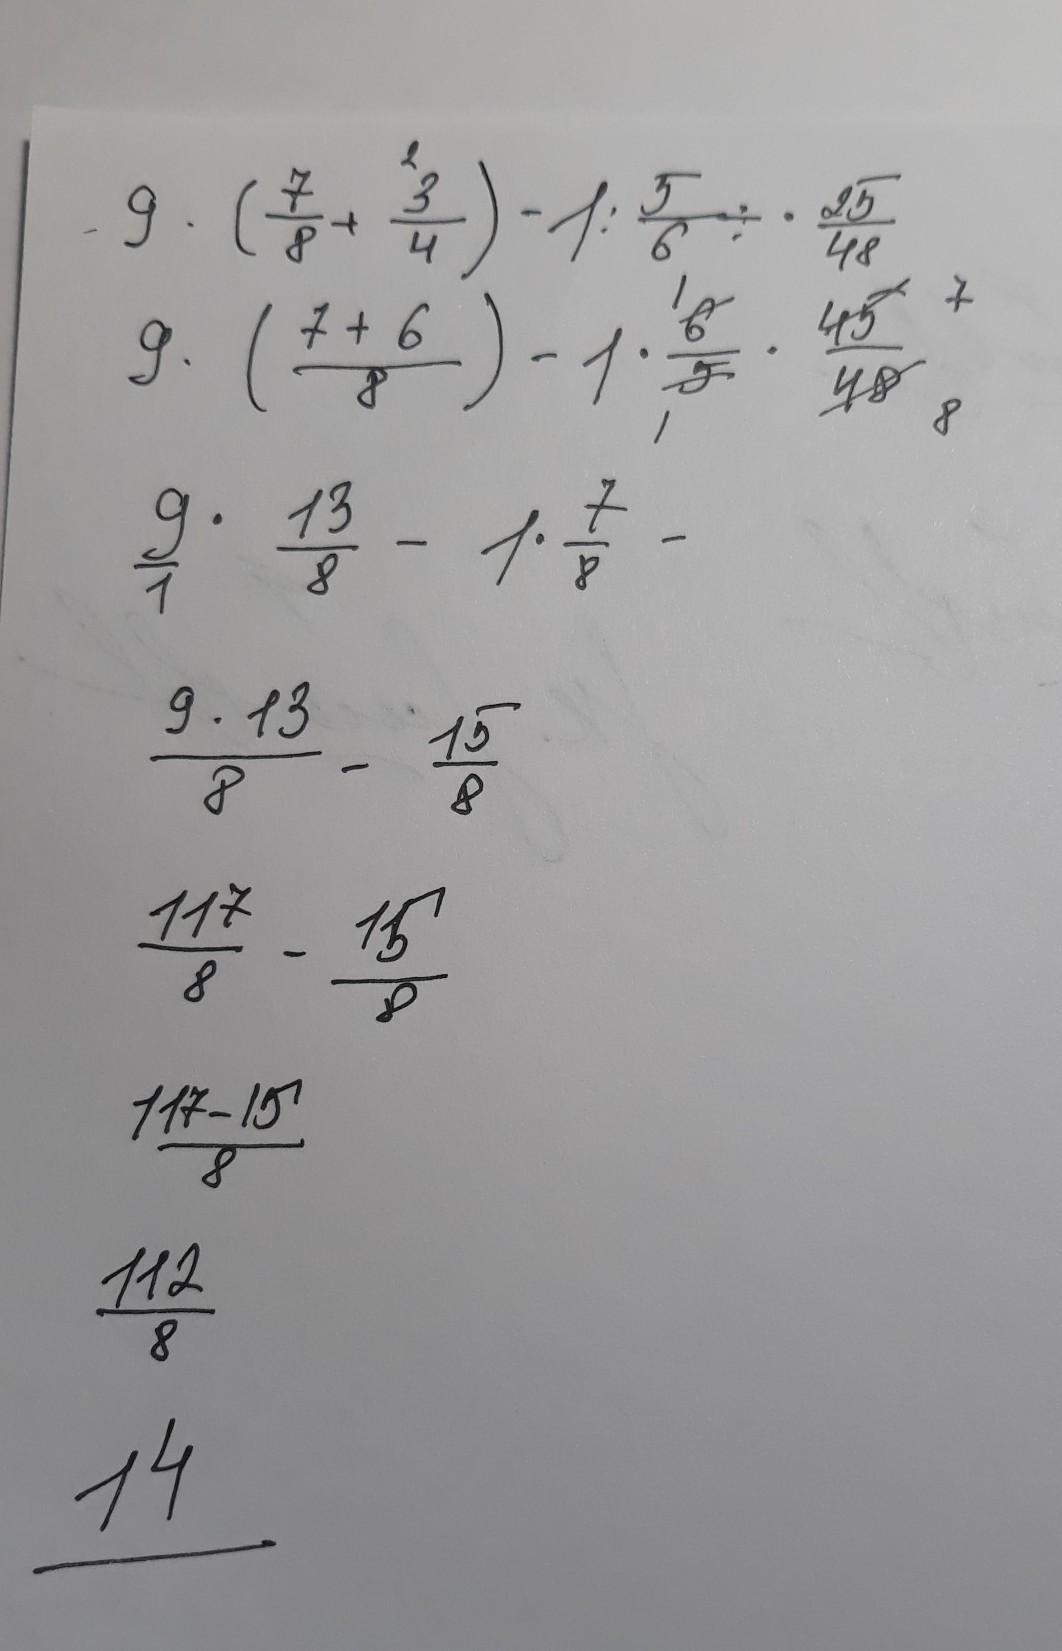 9 · (7/8 + ²3/4) - 1 : 5/6 ÷ · 25/48
9 · ((7 + 6)/8) - 1 · ¹6/5₁ · 45/48 7 8
9/1 · 13/8 - 1 · 7/8 -
9 · 13/8 - 15/8
117/8 - 15/8
117-15/8
112/8
14